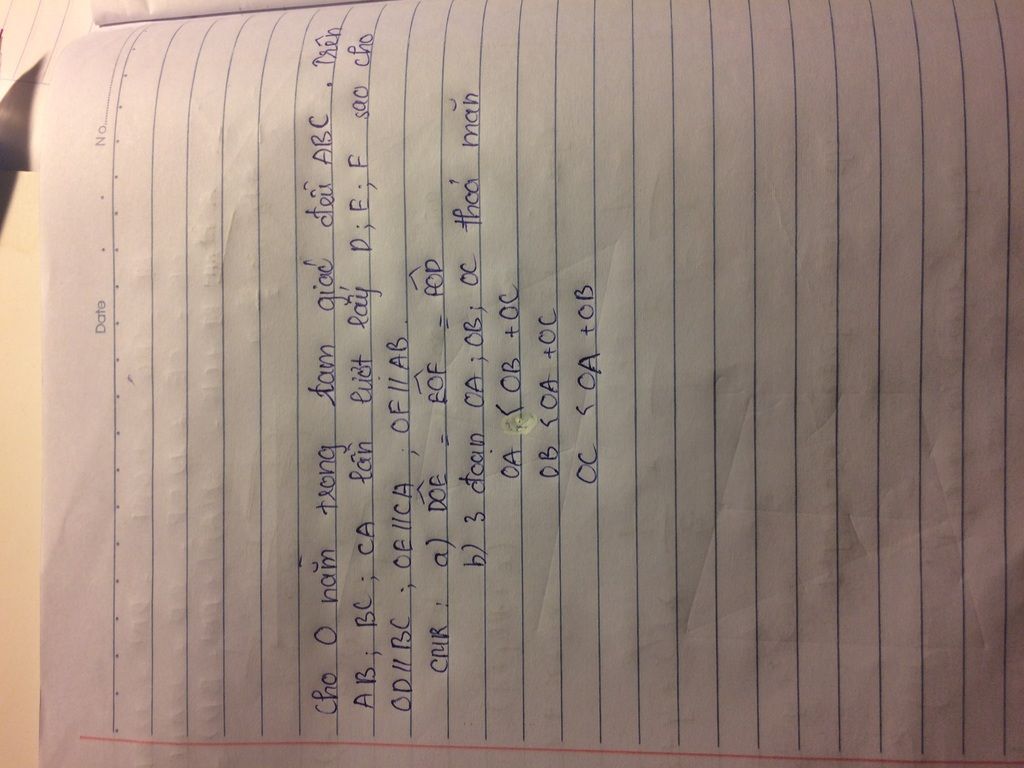 No.
Date
Cho O nằm trong tam giác đều ABC. Trên
AB; BC; CA lần lượt lấy D; E; F sao cho
OD//BC; OE//CA; OF//AB.
CMR: a) DÔE = EÔF = FÔD
b) 3 đoạn OA; OB; OC thoả mãn
OA < OB + OC
OB < OA + OC
OC < OA + OB